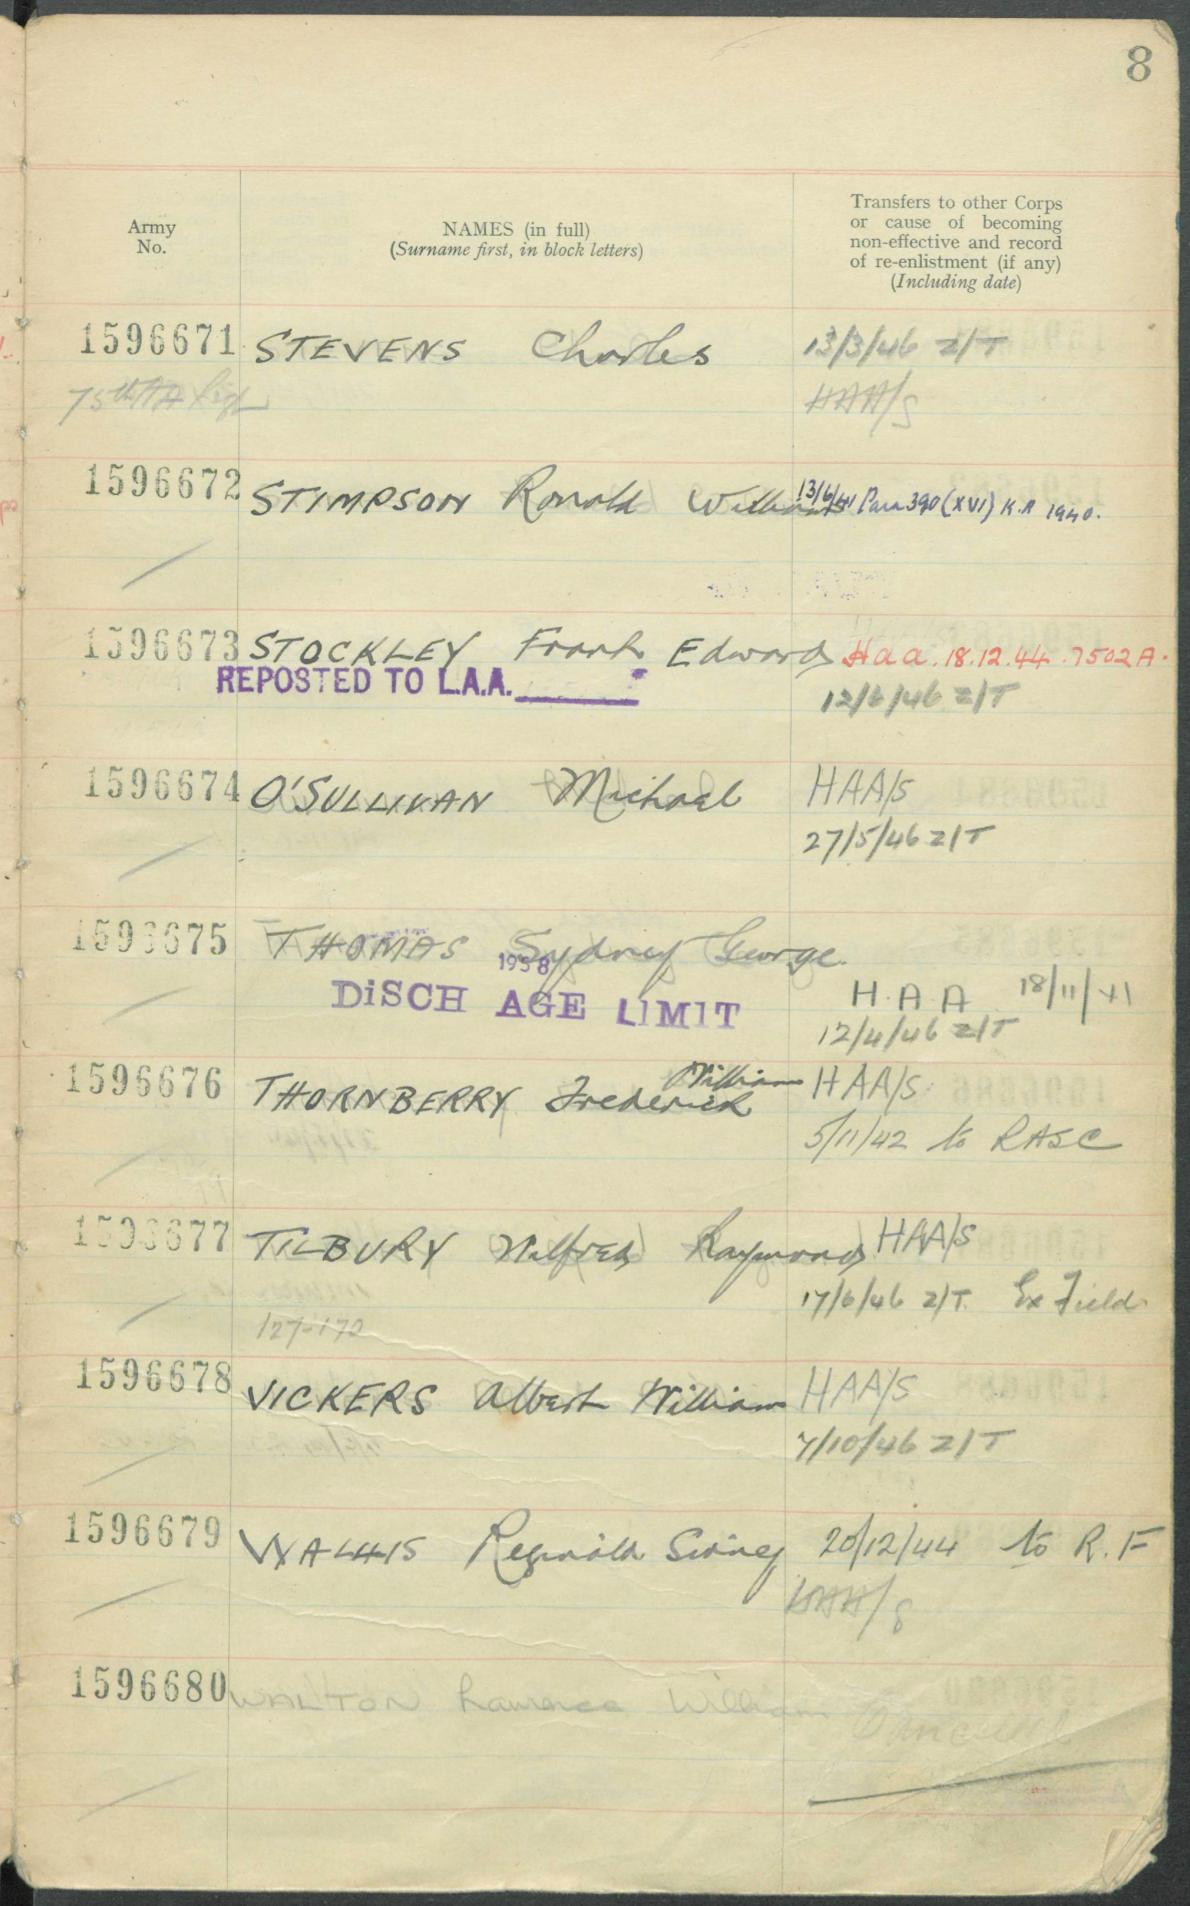 8
Army
No.
NAMES (in full)
(Surname first, in block letters)
Transfers to other Corps
or cause of becoming
non-effective and record
of re-enlistment (if any)
(Including date)
1596671 STEVENS Charles 13/3/46 Z/T
75th AA HAA/S
1596672 STIMPSON Ronald William 13/6/41 Para 390 (XVI) K.R 1940.
1596673 STOCKLEY Frank Edward Haa. 18.12.44. 7502A.
REPOSTED TO L.A.A. 12/6/46 Z/T
1596674 O'SULLIVAN Michael HAA/S
27/5/46 Z/T
1596675 THOMAS Sydney George
1958
DiSCH AGE LIMIT H.A.A 18/11/41
12/4/46 Z/T
1596676 THORNBERRY Frederick William HAA/S
5/11/42 to RASC
1596677 TILBURY Wilfred Raymond HAA/S
17/6/46 Z/T. Ex Field
127-172
1596678 VICKERS Albert William HAA/S
7/10/46 Z/T
1596679 WALLIS Reginald Sidney 20/12/44 to R.F
HAA/S
1596680 WALTON Lawrence William Cancelled